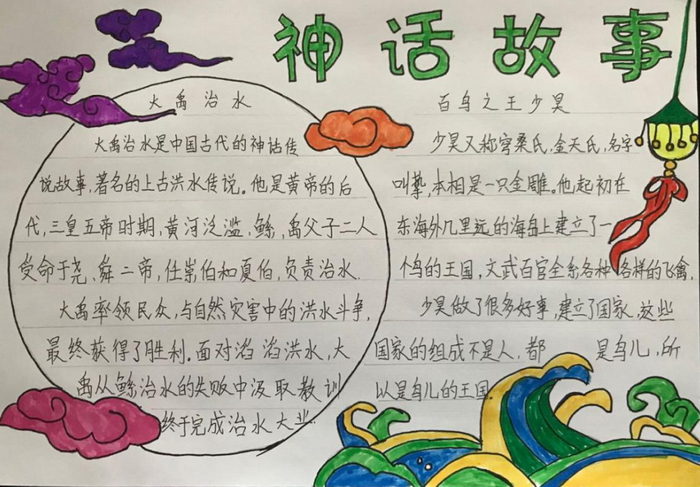 神话故事
大禹治水
大禹治水是中国古代的神话传
说故事,著名的上古洪水传说。他是黄帝的后
代,三皇五帝时期,黄河泛滥,鲧,禹父子二人
受命于尧、舜二帝,任崇伯和夏伯,负责治水.
大禹率领民众,与自然灾害中的洪水斗争,
最终获得了胜利.面对滔滔洪水,大
禹从鲧治水的失败中汲取教训
终于完成治水大业.
百鸟之王少昊
少昊又称穷桑氏,金天氏,名字
叫挚,本相是一只金雕。他起初在
东海外几里远的海岛上建立了一
个鸟的王国,文武百官全系各种各样的飞禽,
少昊做了很多好事,建立了国家,这些
国家的组成不是人,都是鸟儿,所
以是鸟儿的王国.